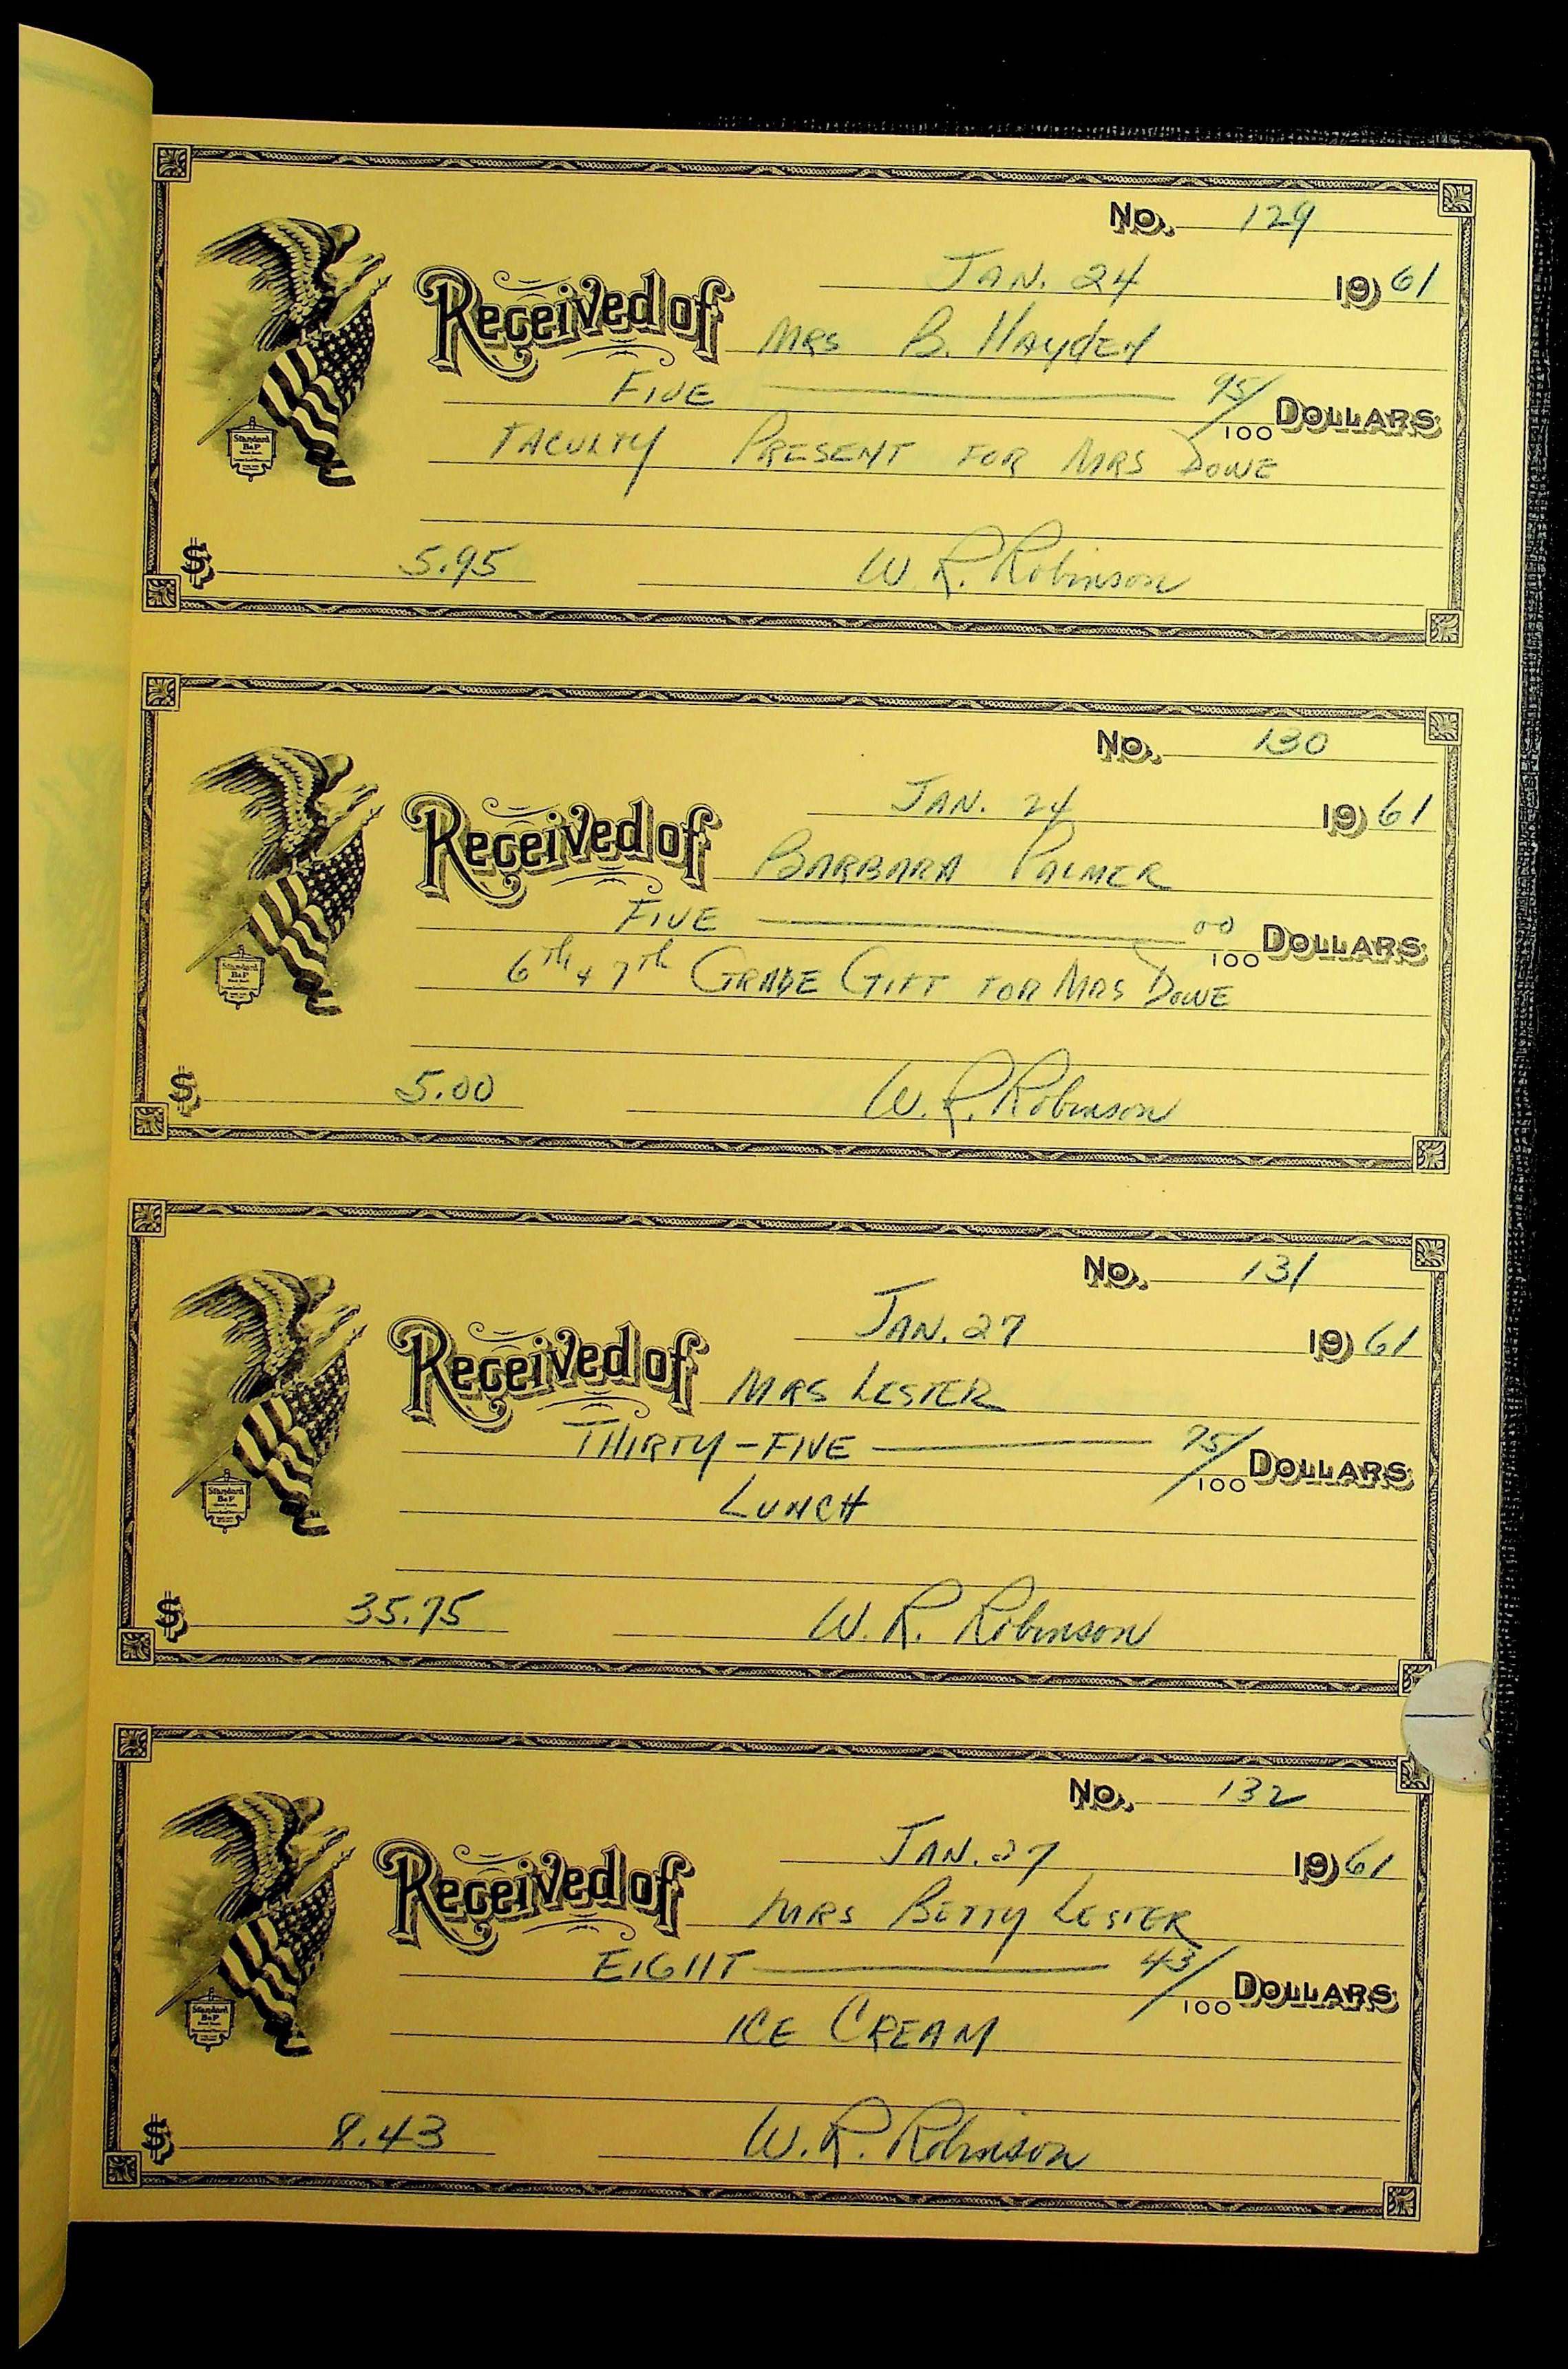 No. 129
JAN. 24 1961
Received of MRS B. HAYDEN
FIVE 95/100 DOLLARS
FACULTY PRESENT FOR MRS DOWE
$ 5.95 W. R. Robinson
No. 130
JAN. 24 1961
Received of BARBARA PALMER
FIVE 00/100 DOLLARS
6th & 7th GRADE GIFT FOR MRS DOWE
Standard
B&P
$ 5.00 W. R. Robinson
No. 131
JAN. 27 1961
Received of MRS LESTER
THIRTY-FIVE 75/100 DOLLARS
Standard
B&P
LUNCH
$ 35.75 W. R. Robinson
No. 132
JAN. 27 1961
Received of MRS BETTY LESTER
EIGHT 43/100 DOLLARS
Standard
B&P
ICE CREAM
$ 8.43 W. R. Robinson